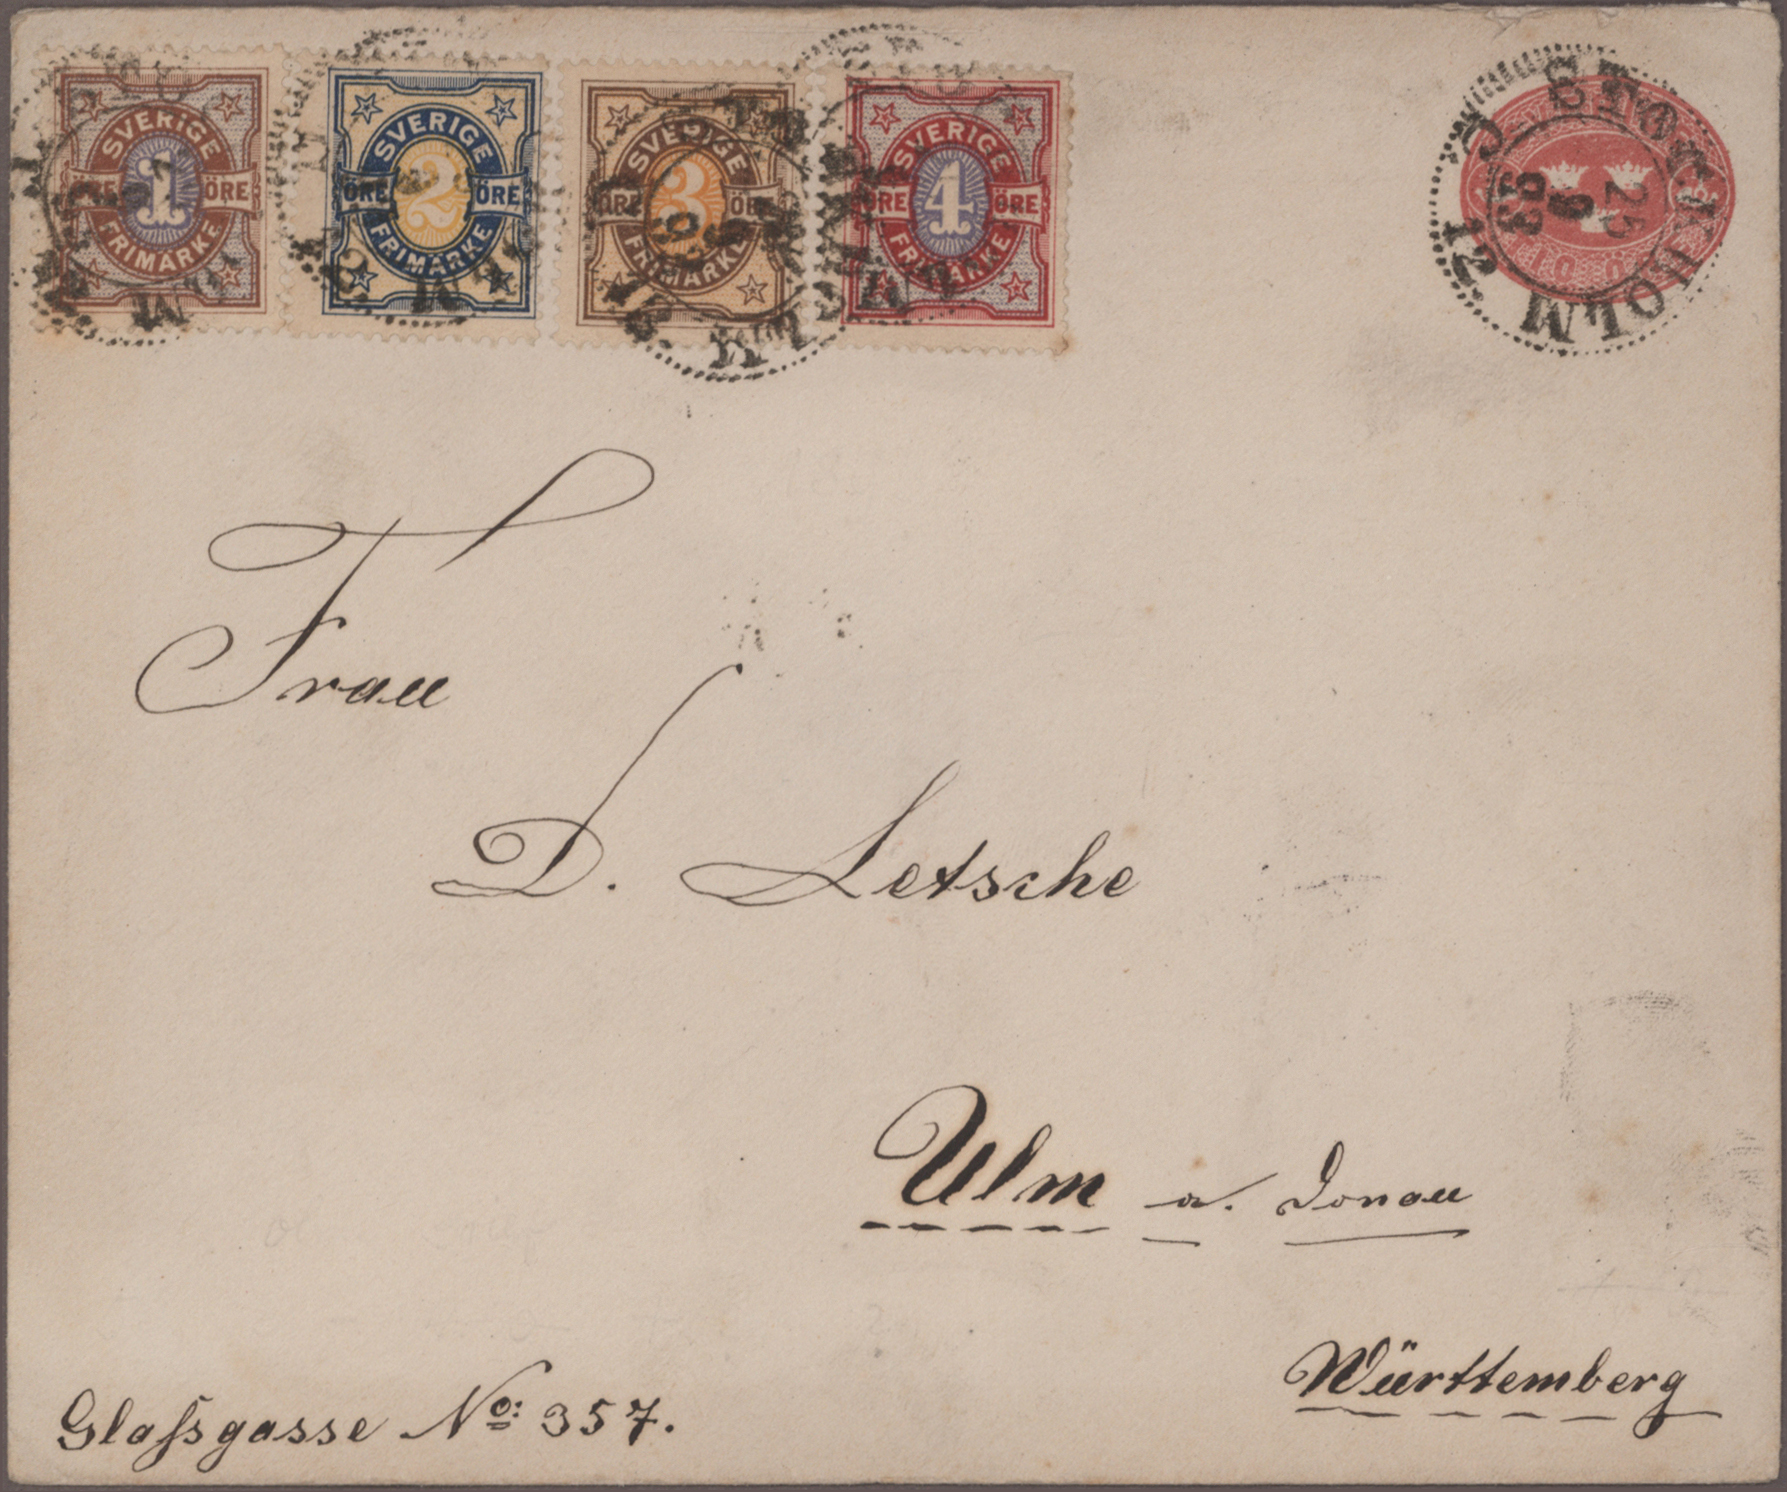 SVERIGE
ÖRE 1 ÖRE
FRIMÄRKE
SVERIGE
ÖRE 2 ÖRE
FRIMÄRKE
SVERIGE
ÖRE 3 ÖRE
FRIMÄRKE
SVERIGE
ÖRE 4 ÖRE
FRIMÄRKE
STOCKHOLM
25
6
93
Frau
D. Letsche
Ulm a. Donau
Württemberg
Glaſsgasse No: 357.